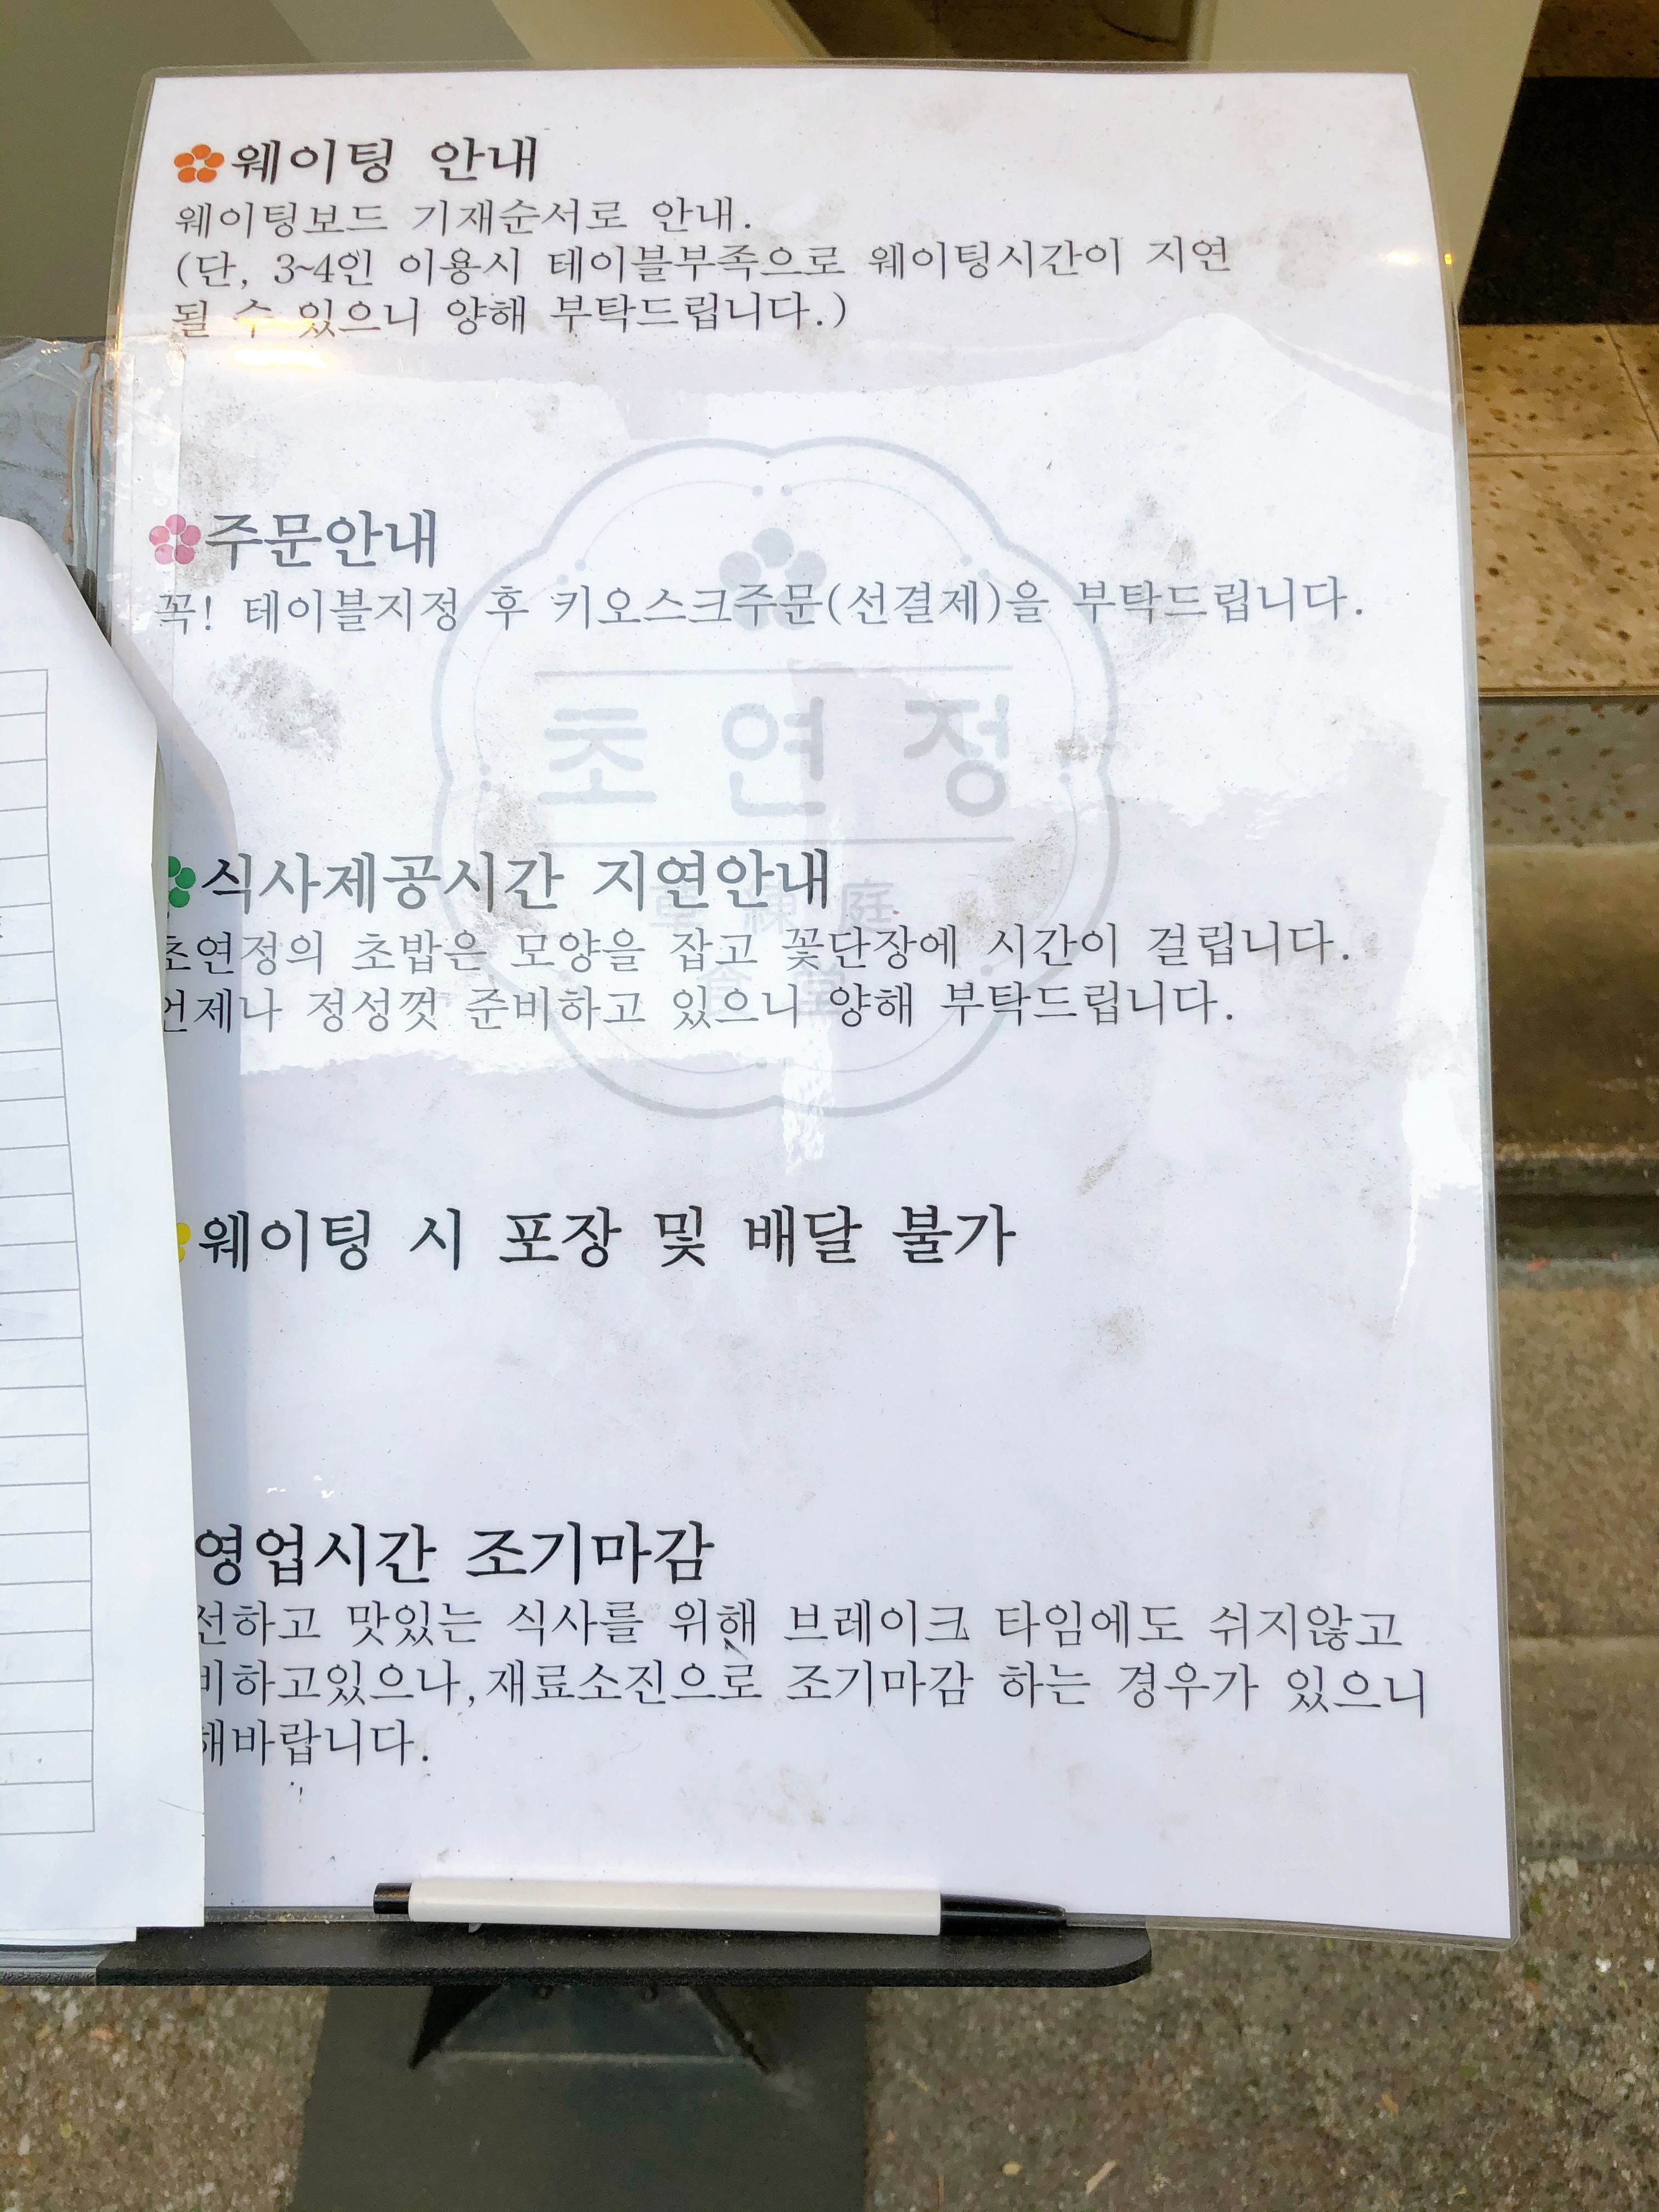 웨이팅 안내
웨이팅보드 기재순서로 안내.
(단, 3~4인 이용시 테이블부족으로 웨이팅시간이 지연
될 수 있으니 양해 부탁드립니다.)
주문안내
꼭! 테이블지정 후 키오스크주문(선결제)을 부탁드립니다.
초연정
식사제공시간 지연안내
초연정의 초밥은 모양을 잡고 꽃단장에 시간이 걸립니다.
언제나 정성껏 준비하고 있으니 양해 부탁드립니다.
웨이팅 시 포장 및 배달 불가
영업시간 조기마감
전하고 맛있는 식사를 위해 브레이크 타임에도 쉬지않고
비하고있으나,재료소진으로 조기마감 하는 경우가 있으니
해바랍니다.